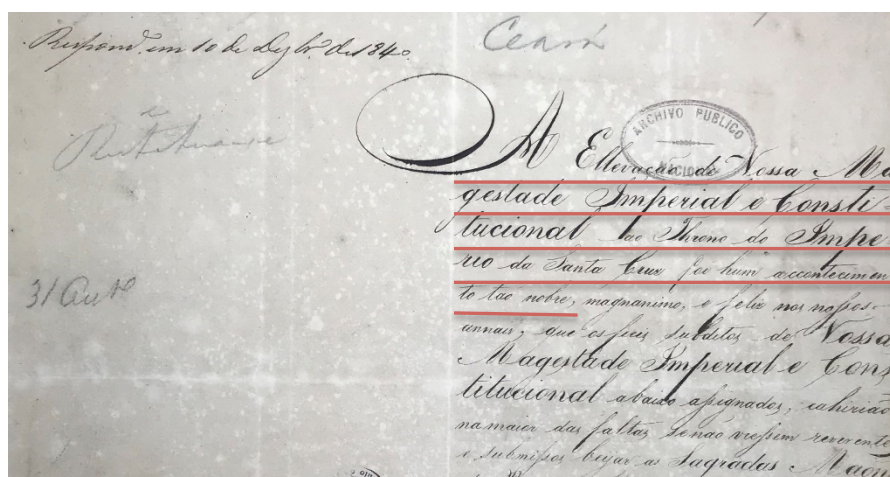 Respond.º em 10 de Dezbr.º de 1840
Ceará
31 Out.º
ARCHIVO PUBLICO
NACIONAL
A Ellevação de Vossa Ma
gestade Imperial e Consti-
tucional ao Throno do Impe
rio da Santa Cruz foi hum accontecimen
to tão nobre, magnanimo, e feliz nos nossos
annais, que os fieis subditos de Vossa
Magestade Imperial e Cons
titucional abaixo assignados, cahirião
na maior das faltas se não viessem reverente
e submissos beijar as Sagradas Maons